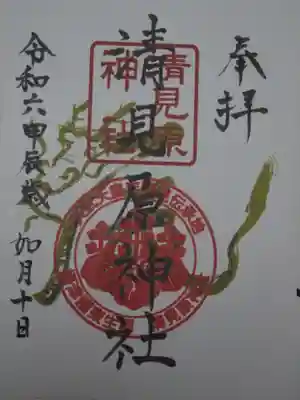 奉拝
清見原神社
清見原
神社
令和六甲辰歳 如月十日